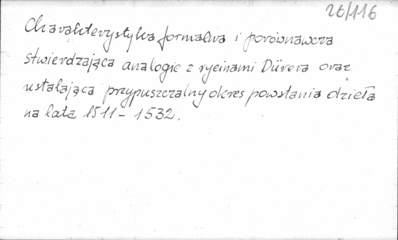 26/116
Charakterystyka formalna i porównawcza
stwierdzająca analogie z rycinami Dürera oraz
ustalająca przypuszczalny okres powstania dzieła
na lata 1511 - 1532.